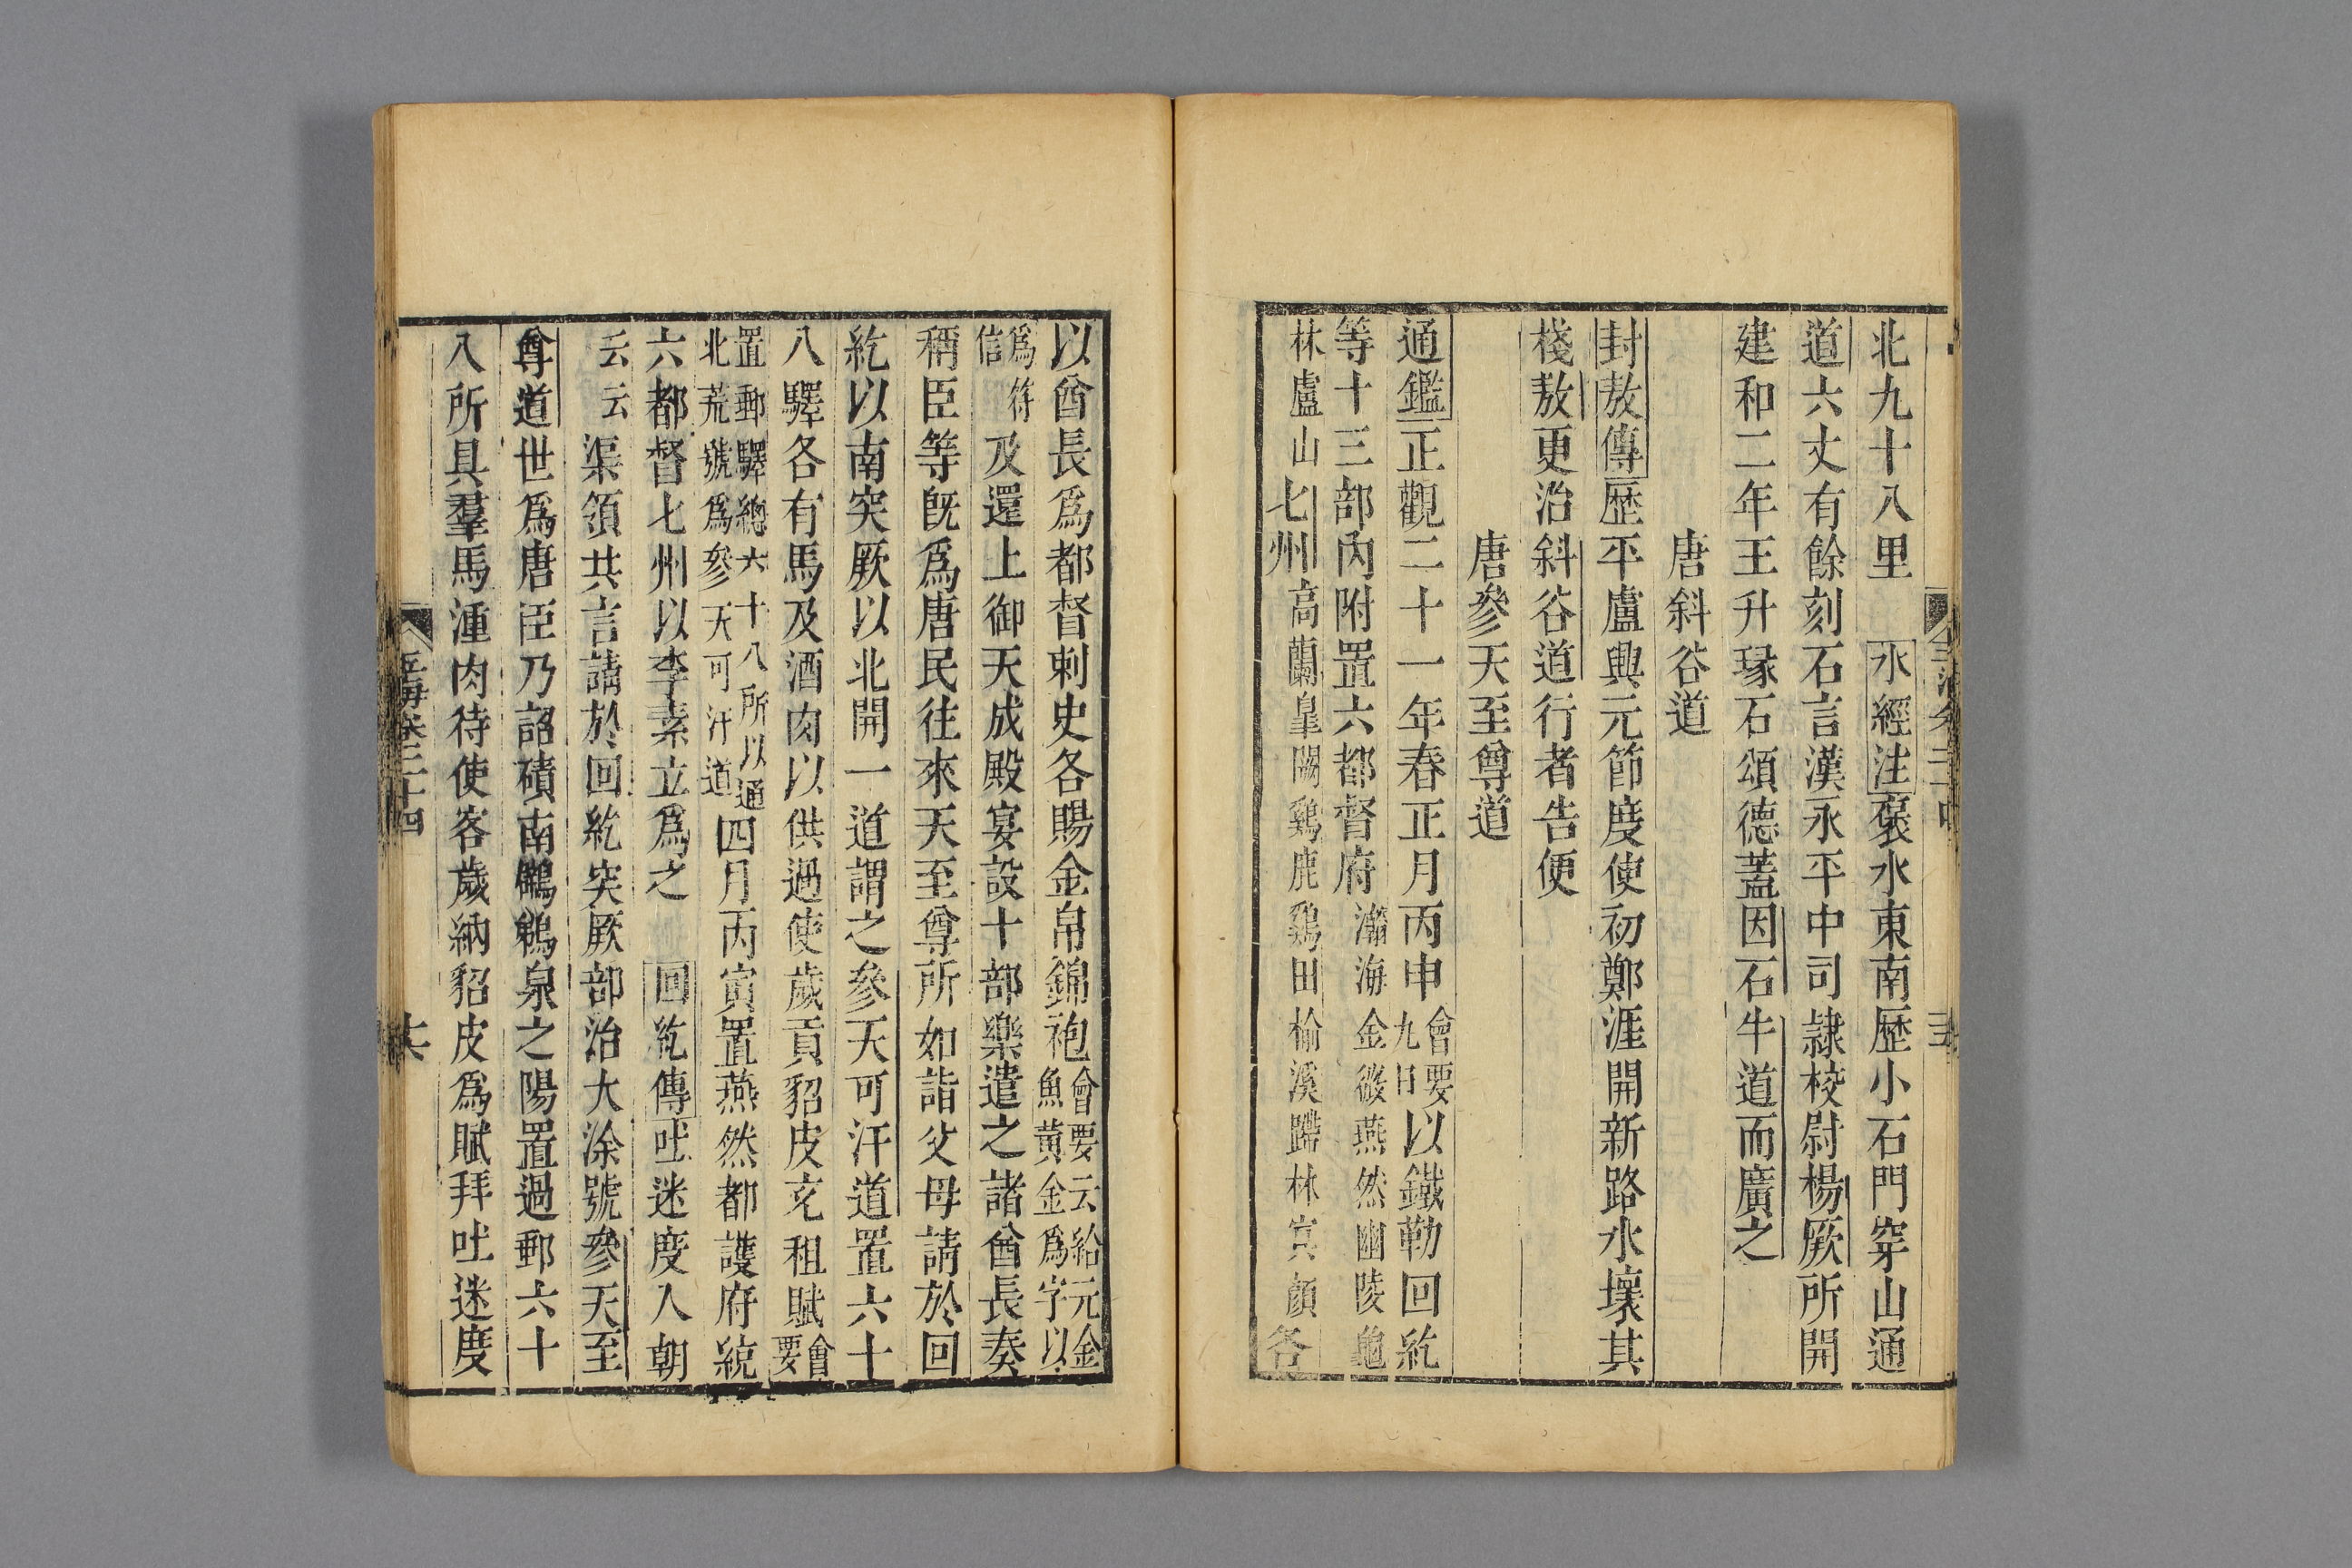 北九十八里　水經注褒水東南歷小石門穿山通
道六丈有餘刻石言漢永平中司隸校尉楊厥所開
建和二年王升琢石頌德蓋因石牛道而廣之
唐斜谷道
封敖傳歷平盧興元節度使初鄭涯開新路水壞其
棧敖更治斜谷道行者告便
唐參天至尊道
通鑑正觀二十一年春正月丙申會要九日以鐵勒回紇
等十三部內附置六都督府瀚海金微燕然幽陵龜
林盧山七州高蘭皐闕鷄鹿鷄田榆溪蹛林寘顏各
以酋長爲都督刺史各賜金帛錦袍會要云給元金魚黃金爲字以
爲符信及還上御天成殿宴設十部樂遣之諸酋長奏
稱臣等旣爲唐民往來天至尊所如詣父母請於回
紇以南突厥以北開一道謂之參天可汗道置六十
八驛各有馬及酒肉以供過使歲貢貂皮充租賦會要
置郵驛總六十八所以通北荒號爲參天可汗道四月丙寅置燕然都護府統
六都督七州以李素立爲之　回紇傳吐迷度入朝
云云渠領共言請於回紇突厥部治大涂號參天至
尊道世爲唐臣乃詔磧南鷿鵜泉之陽置過郵六十
八所具羣馬湩肉待使客歲納貂皮爲賦拜吐迷度
玉海卷二十四